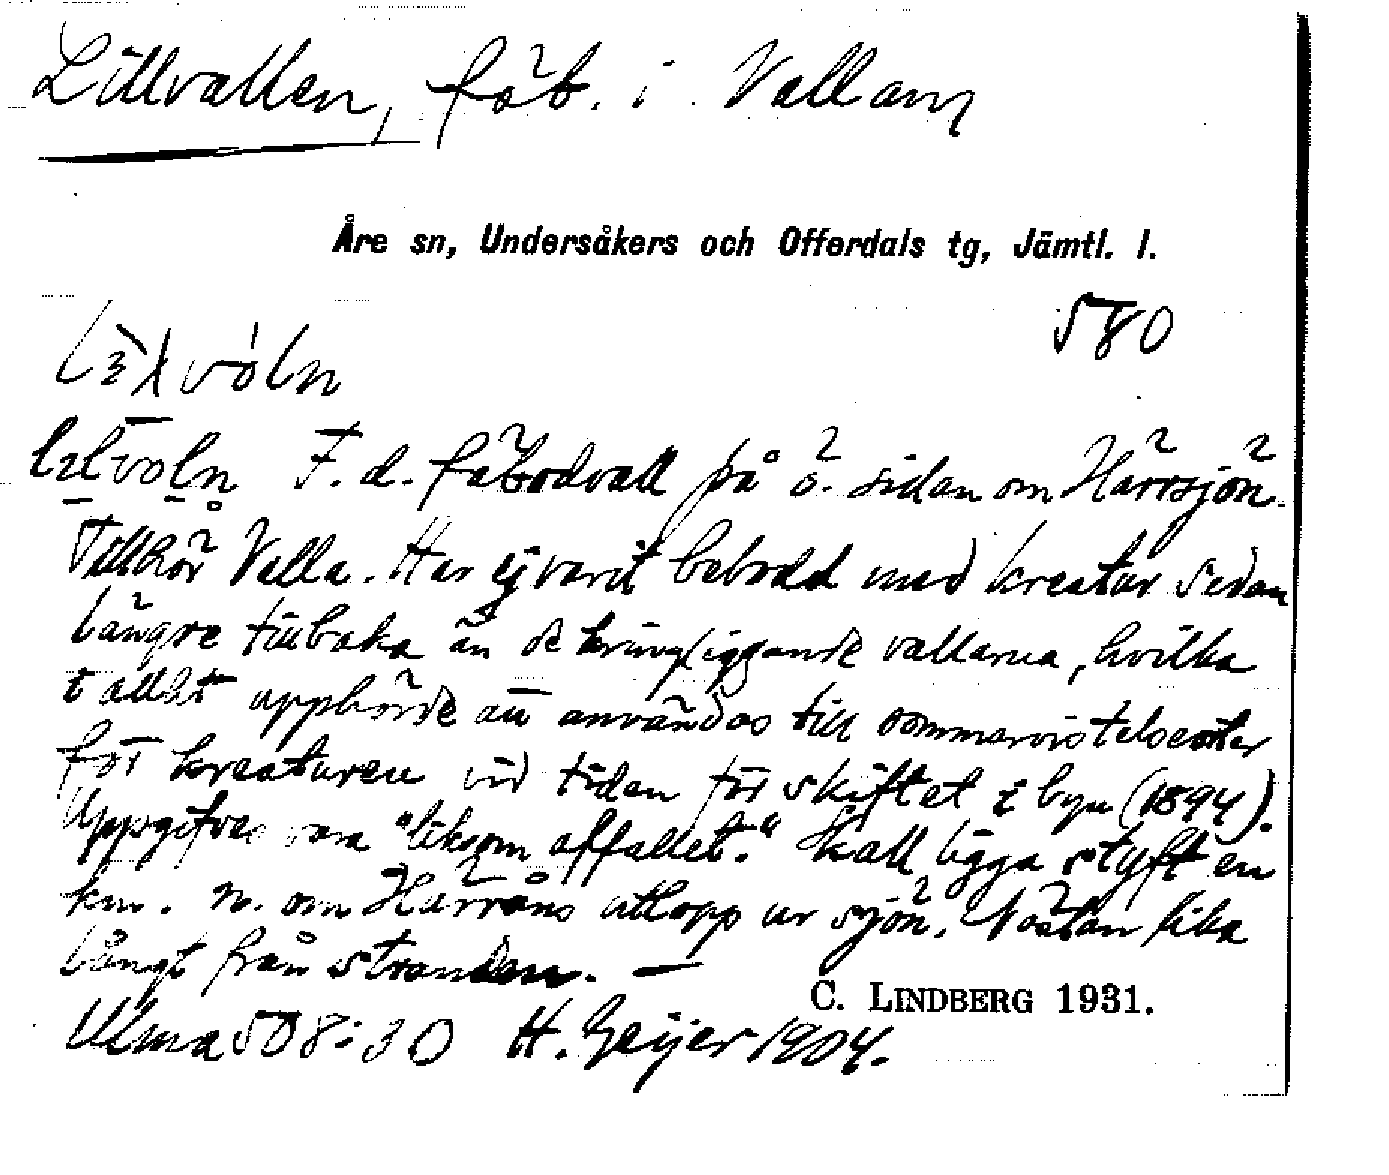 Lillvallen, fäb. i Vallarna
Åre sn, Undersåkers och Offerdals tg, Jämtl. l.
580
F. d. fäbodvall på ö. sidan om Härrsjön.
Tillhör Valla. Har ej varit bebodd med kreatur sedan
längre tillbaka än de kringliggande vallarna, hvilka
t allt upphörde att användas till sommarvistelseorter
för kreaturen vid tiden för skiftet i byn (1894).
Uppgifves vara "liksom affallet." Skall ligga styft en
km. n. om Härråns utlopp ur sjön. Nästan lika
långt från stranden. —
C. LINDBERG 1931.
Ulma 508:30 H. Geijer 1904.